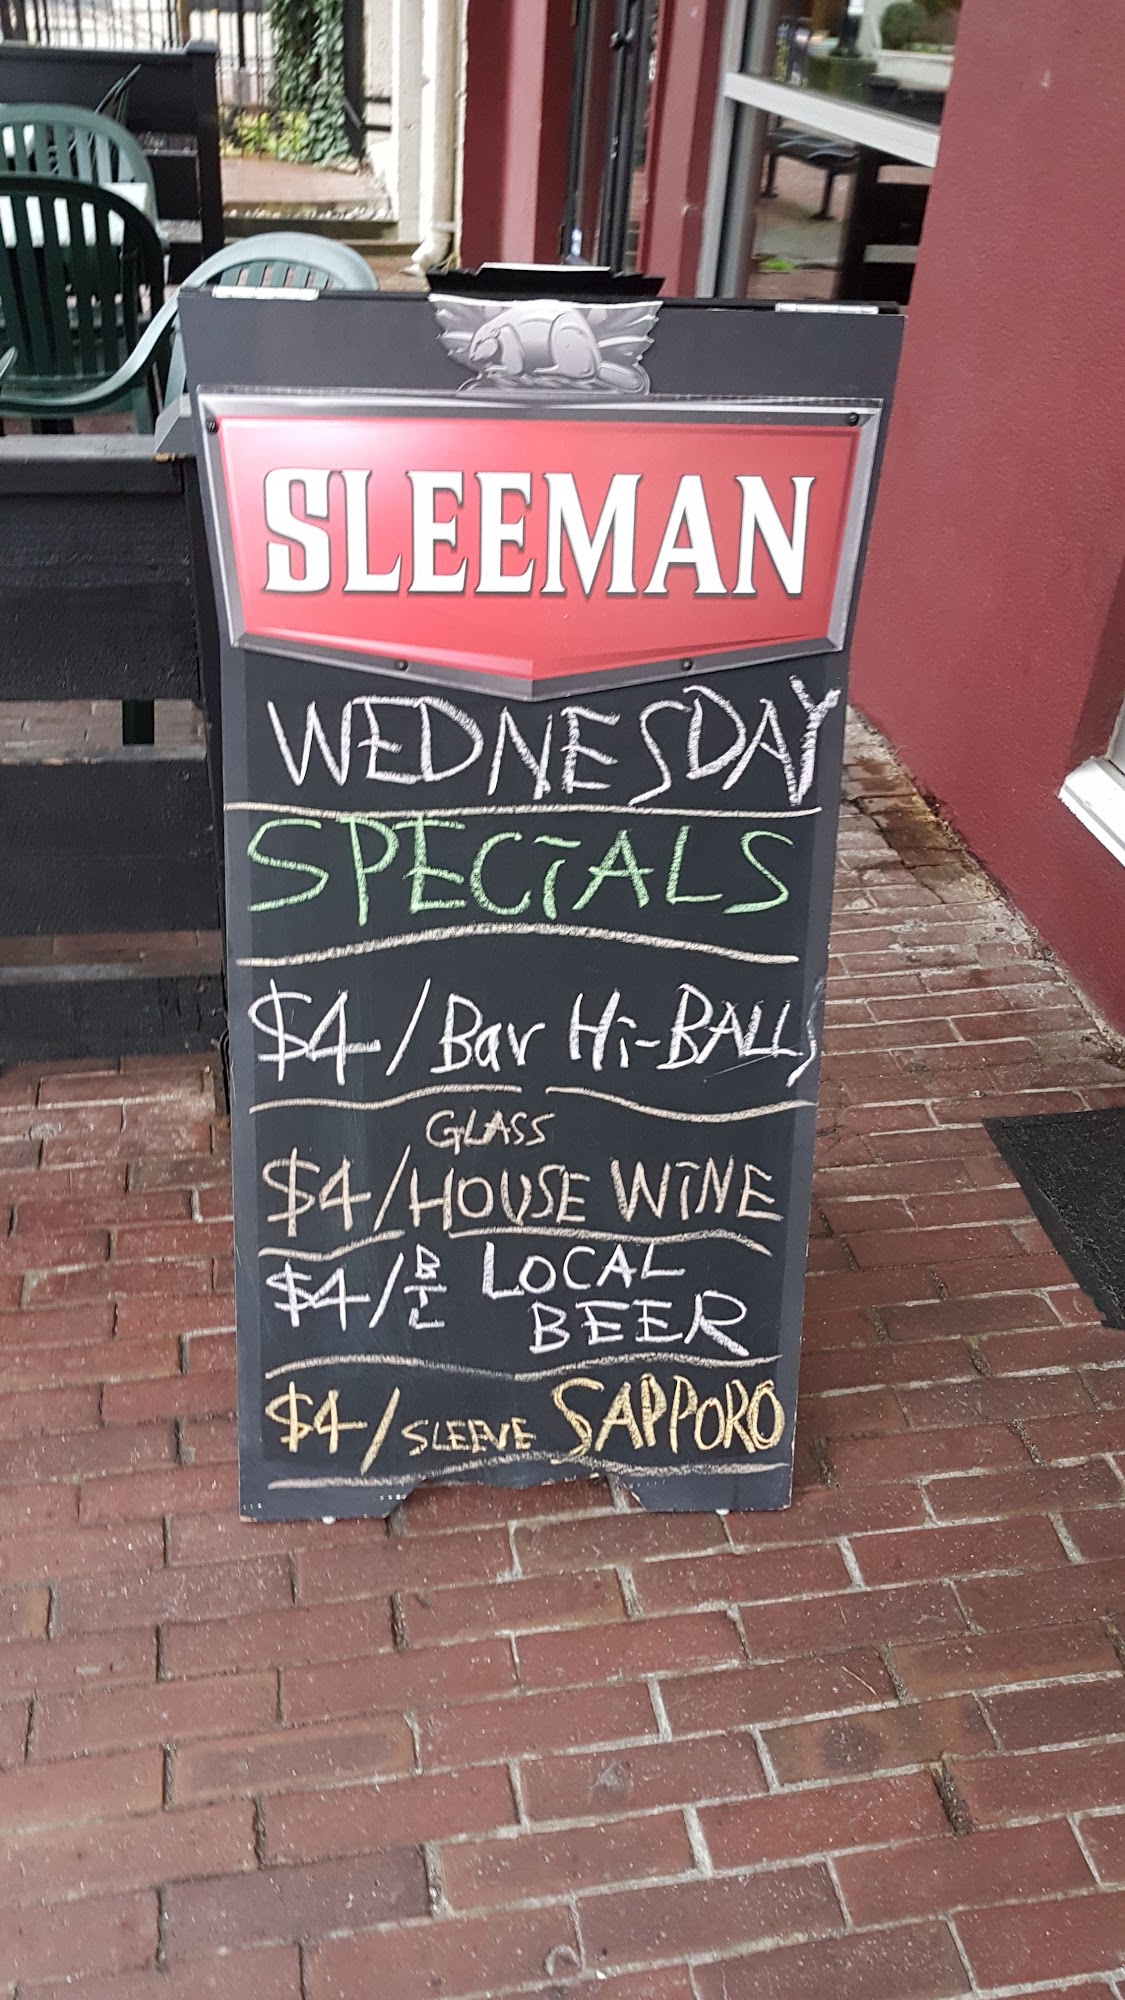 SLEEMAN
WEDNESDAY
SPECIALS
$4/Bar Hi-BALLS
GLASS
$4/HOUSE WINE
$4/BTL LOCAL
BEER
$4/SLEEVE SAPPORO